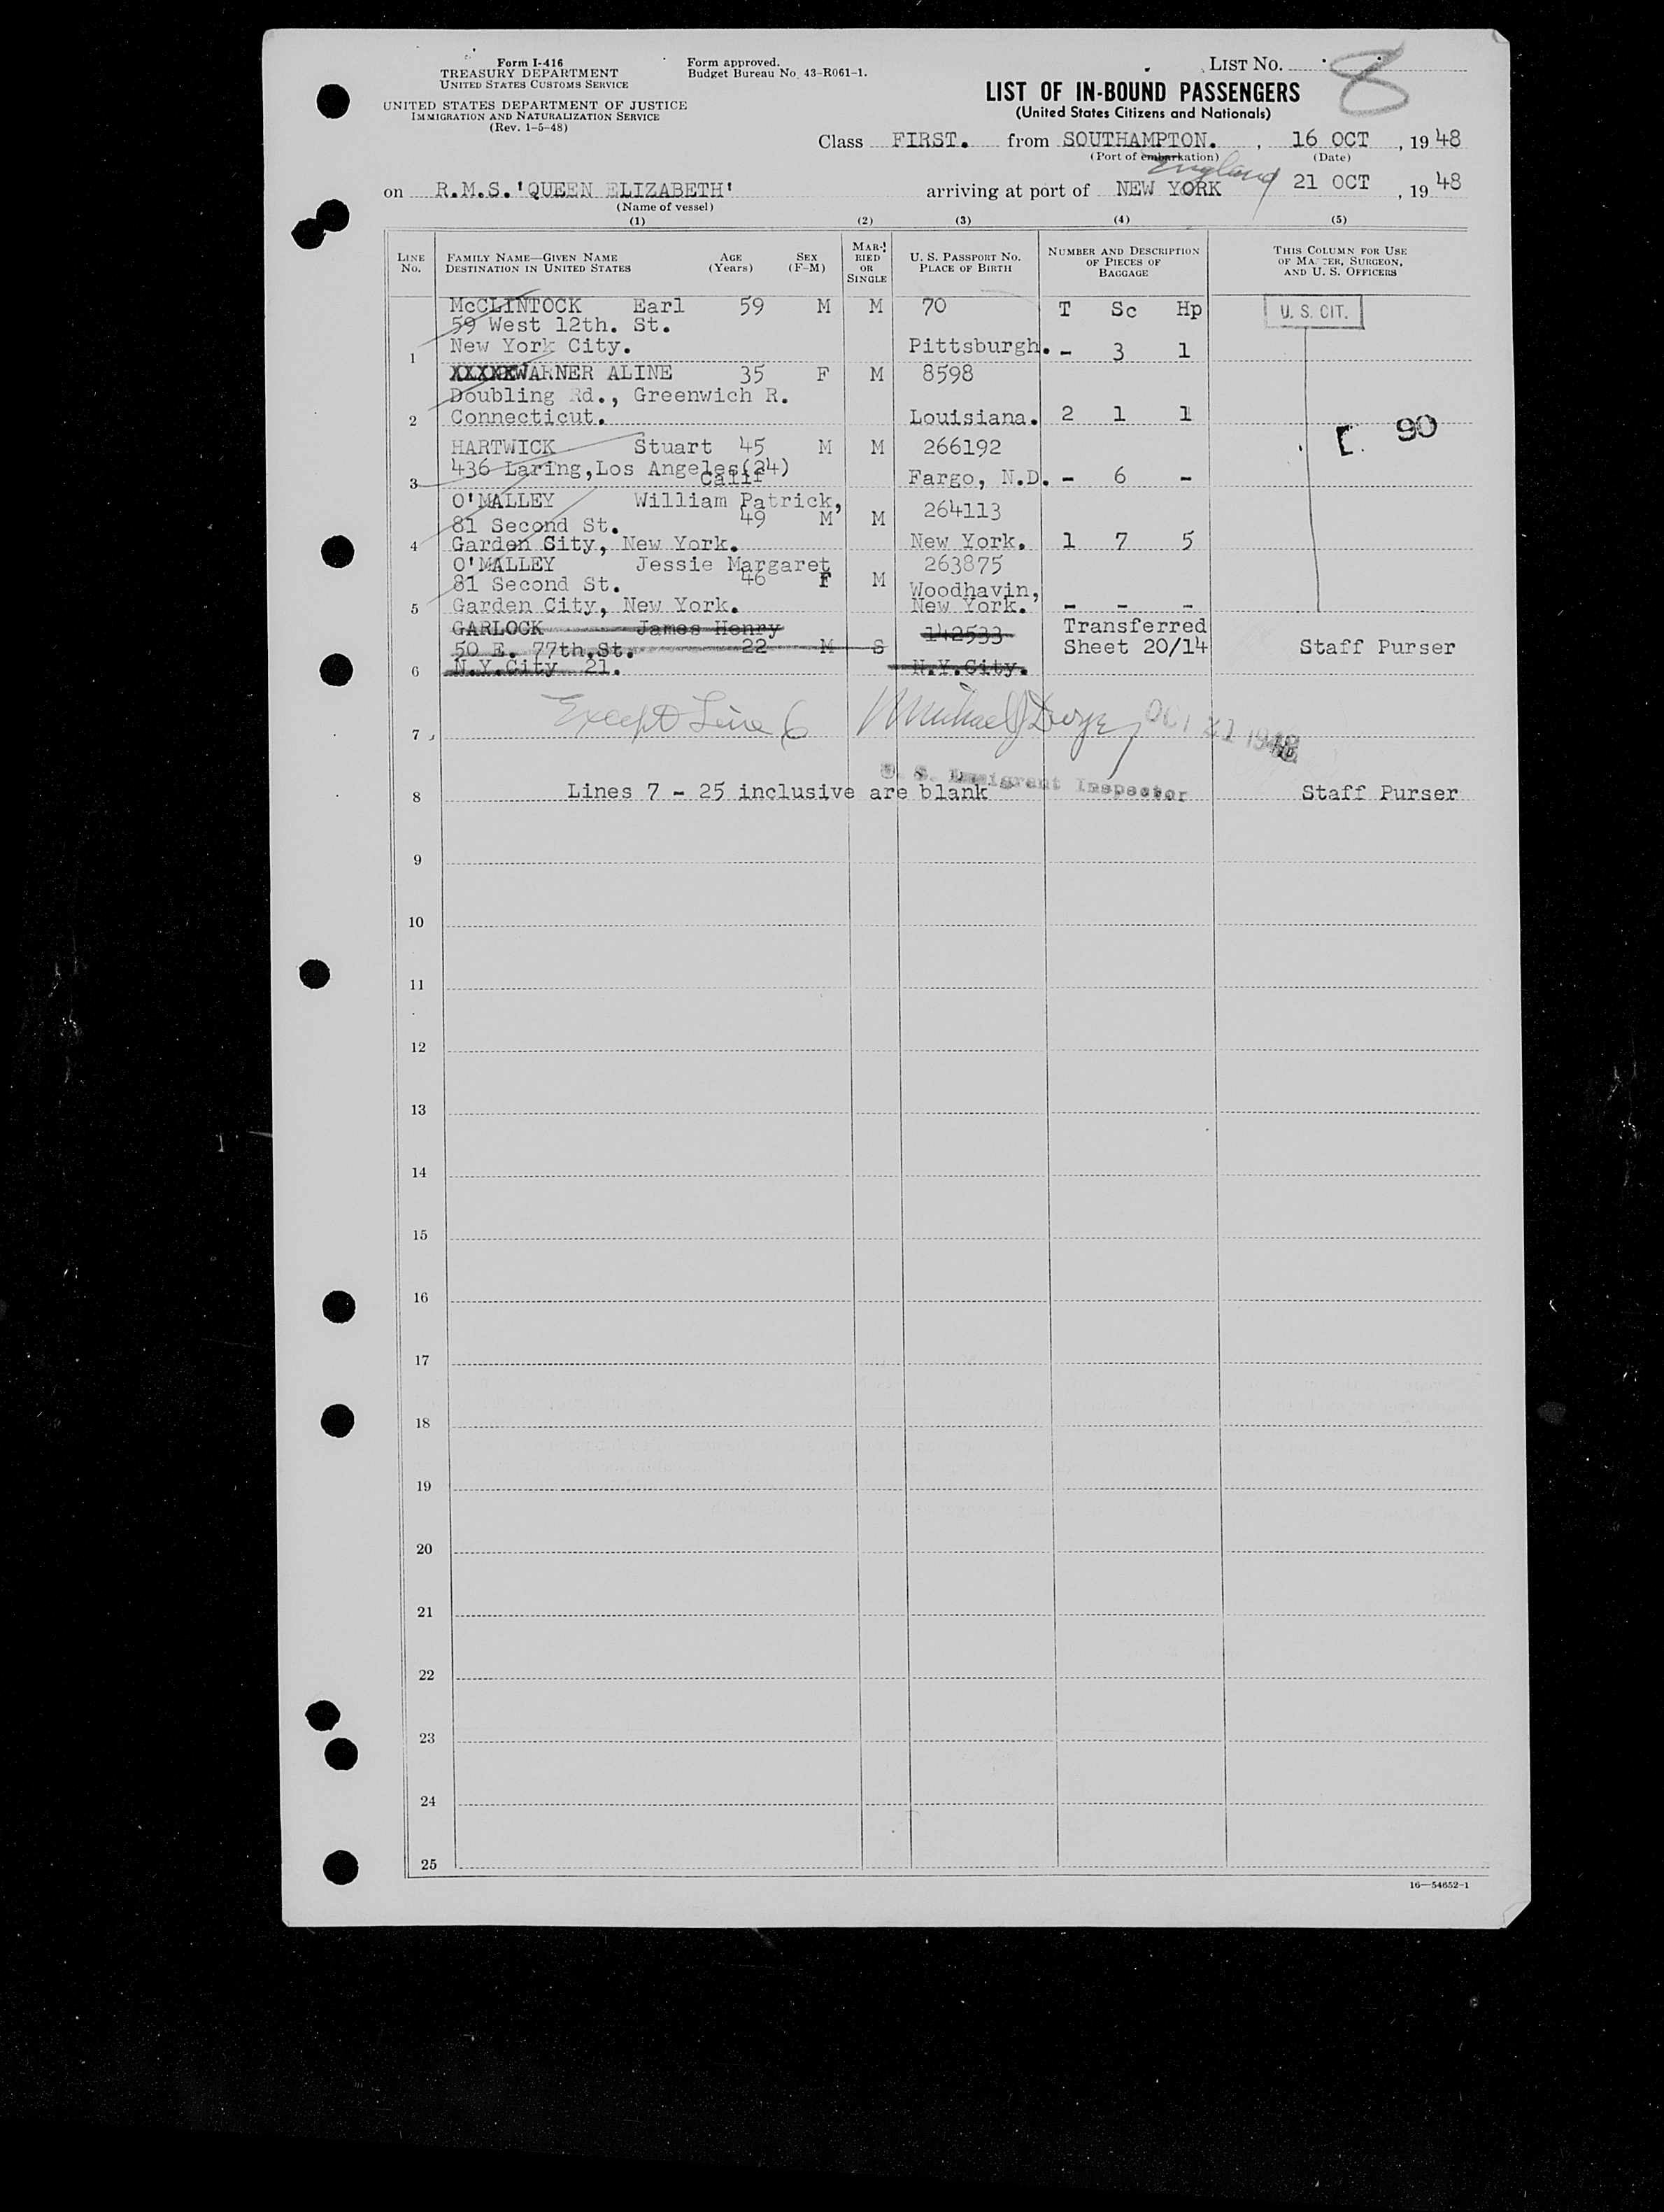 Form I-416
TREASURY DEPARTMENT
UNITED STATES CUSTOMS SERVICE
UNITED STATES DEPARTMENT OF JUSTICE
IMMIGRATION AND NATURALIZATION SERVICE
(Rev. 1-5-48)
Form approved.
Budget Bureau No. 43-R061-1.
LIST NO. 8
LIST OF IN-BOUND PASSENGERS
(United States Citizens and Nationals)
Class FIRST. from SOUTHAMPTON. , 16 OCT , 19 48
(Port of embarkation) (Date)
England
on R.M.S.'QUEEN ELIZABETH' arriving at port of NEW YORK 21 OCT , 19 48
(Name of vessel)
(1) (2) (3) (4) (5)
LINE No. FAMILY NAME—GIVEN NAME DESTINATION IN UNITED STATES AGE (Years) SEX (F-M) MARRIED OR SINGLE U. S. PASSPORT NO. PLACE OF BIRTH NUMBER AND DESCRIPTION OF PIECES OF BAGGAGE THIS COLUMN FOR USE OF MASTER, SURGEON, AND U. S. OFFICERS
McCLINTOCK Earl 59 M M 70 T Sc Hp U. S. CIT.
59 West 12th. St.
1 New York City. Pittsburgh. - 3 1
XXXXXWARNER ALINE 35 F M 8598
Doubling Rd., Greenwich R.
2 Connecticut. Louisiana. 2 1 1
90
HARTWICK Stuart 45 M M 266192
436 Laring,Los Angeles(24)
3 Calif Fargo, N.D. - 6 -
O'MALLEY William Patrick,
81 Second St. 49 M M 264113
4 Garden City, New York. New York. 1 7 5
O'MALLEY Jessie Margaret 263875
81 Second St. 46 F M Woodhavin,
5 Garden City, New York. New York. - - -
GARLOCK James Henry 142533 Transferred
50 E. 77th,St. 22 M S Sheet 20/14 Staff Purser
6 N.Y.City 21. N.Y.City.
Except Line 6 Michael J Dwyer OCT 21 1948
7
U. S. Immigrant Inspector
8 Lines 7 - 25 inclusive are blank Staff Purser
9
10
11
12
13
14
15
16
17
18
19
20
21
22
23
24
25
16—54652-1